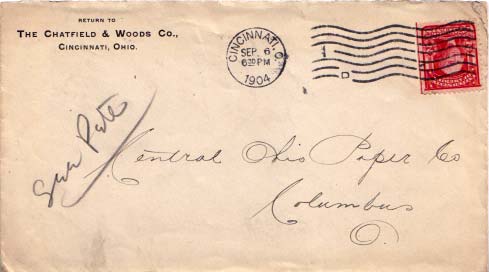 RETURN TO
THE CHATFIELD & WOODS CO.,
CINCINNATI, OHIO.
CINCINNATI, O.
SEP. 6
630 PM
1904
1
D
Central Ohio Paper Co
Columbus
O.